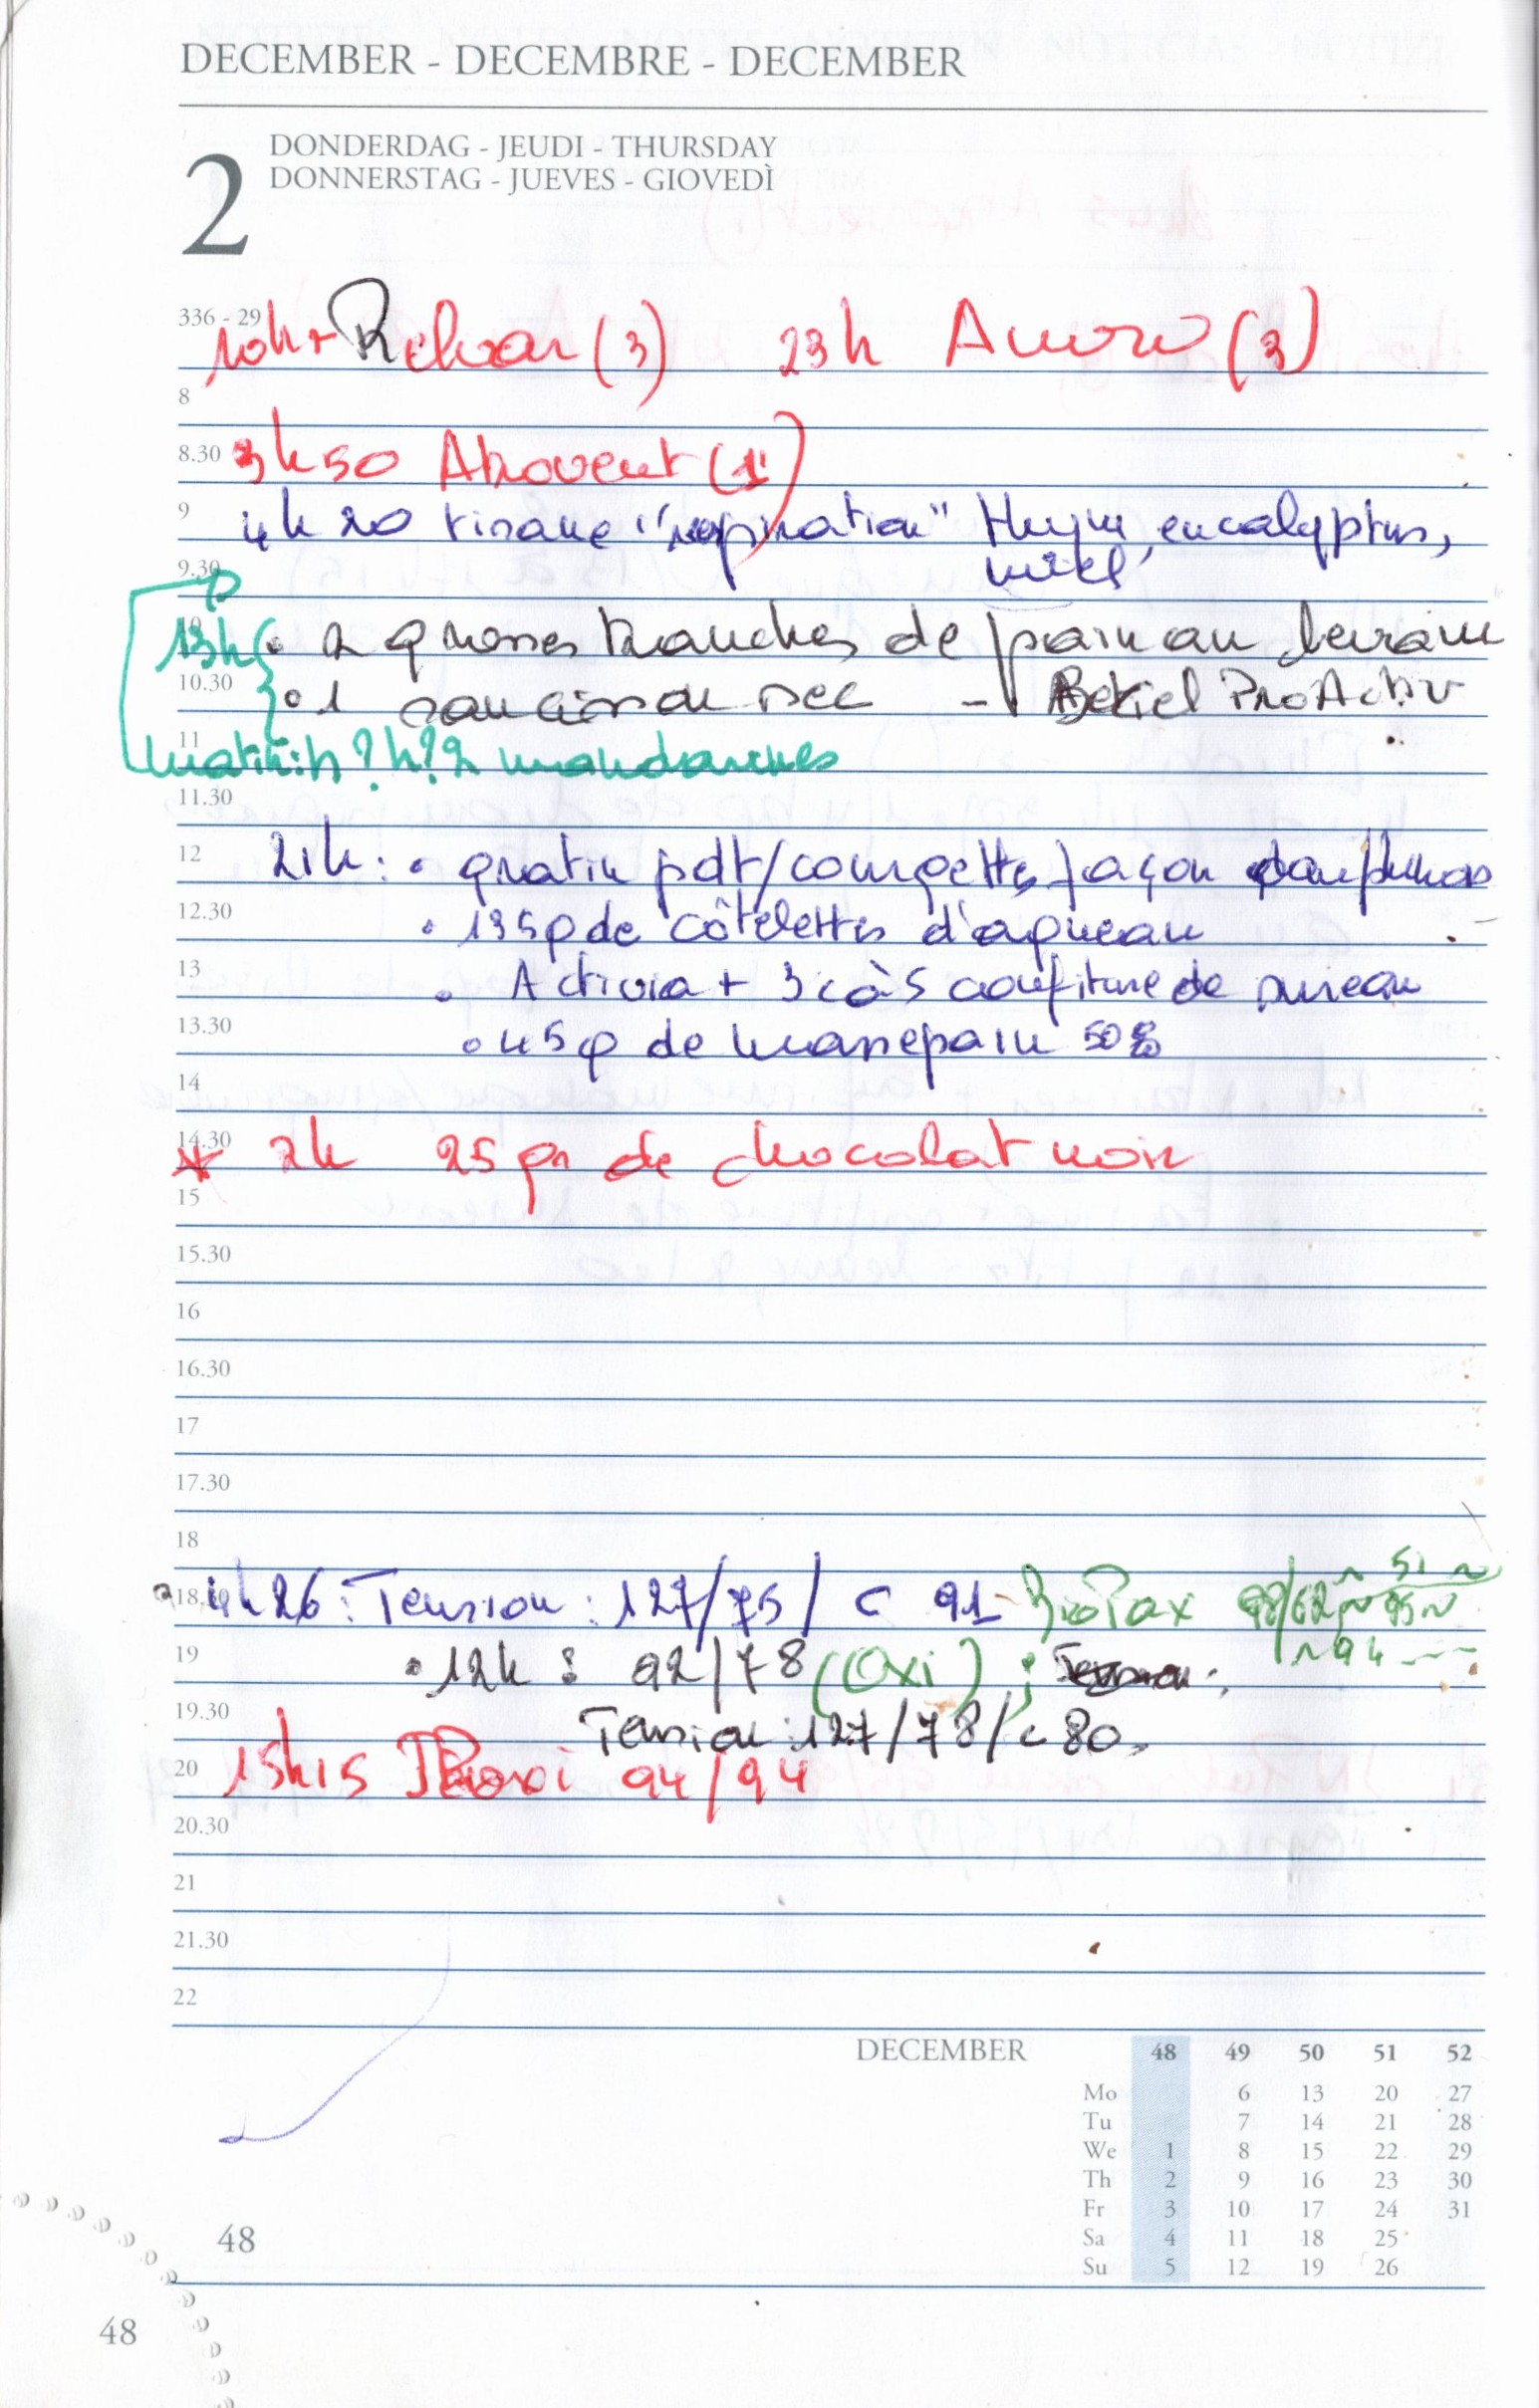 DECEMBER - DECEMBRE - DECEMBER
2
DONDERDAG - JEUDI - THURSDAY
DONNERSTAG - JUEVES - GIOVEDÌ
336 - 29
10h+ Relvar (3) 23h Anoro (3)
8
8.30 3h50 Atrovent (1)
9 4h20 tisane "respiration" thym, eucalyptus,
miel
9.30
13h • 2 grosses tranches de pain au levain
10.30 • 1 saucisson sec - Becel ProActiv
11 matin: ?h? 2 mandarines
11.30
12 21h: • gratin pdt/courgettes façon dauphinois
12.30 • 135g de côtelettes d'agneau
13 • Activia + 3 càS confiture de sureau
13.30 • 45g de massepain 50%
14
14.30 * 2h 25 gr de chocolat noir
15
15.30
16
16.30
17
17.30
18
51
4h26: Tension: 127/75/ c 91
~94
19 • 12h: 92/78 (Oxi);
19.30 Tension: 127/78/c 80.
20 15h15 94/94
20.30
21
21.30
22
DECEMBER 48 49 50 51 52
Mo 6 13 20 27
Tu 7 14 21 28
We 1 8 15 22 29
Th 2 9 16 23 30
Fr 3 10 17 24 31
Sa 4 11 18 25
Su 5 12 19 26
48
48